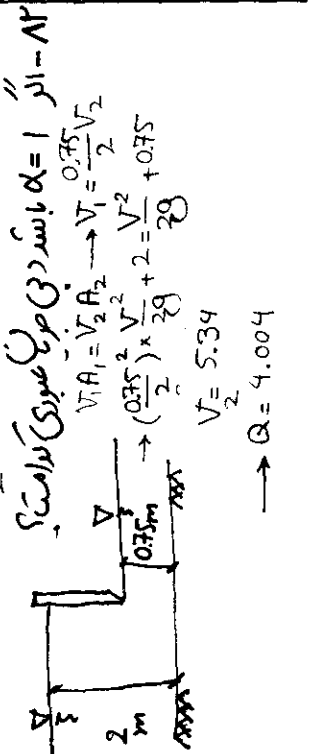 ۸۲ - اگر α = 1 باشد دبی جریان عبوری کدامست؟
V₁A₁ = V₂A₂ → V₁ = 0.75/2 V₂
→ (0.75/2)² × V²/2g + 2 = V²/2g + 0.75
V₂ = 5.34
→ Q = 4.004
2 m
0.75m